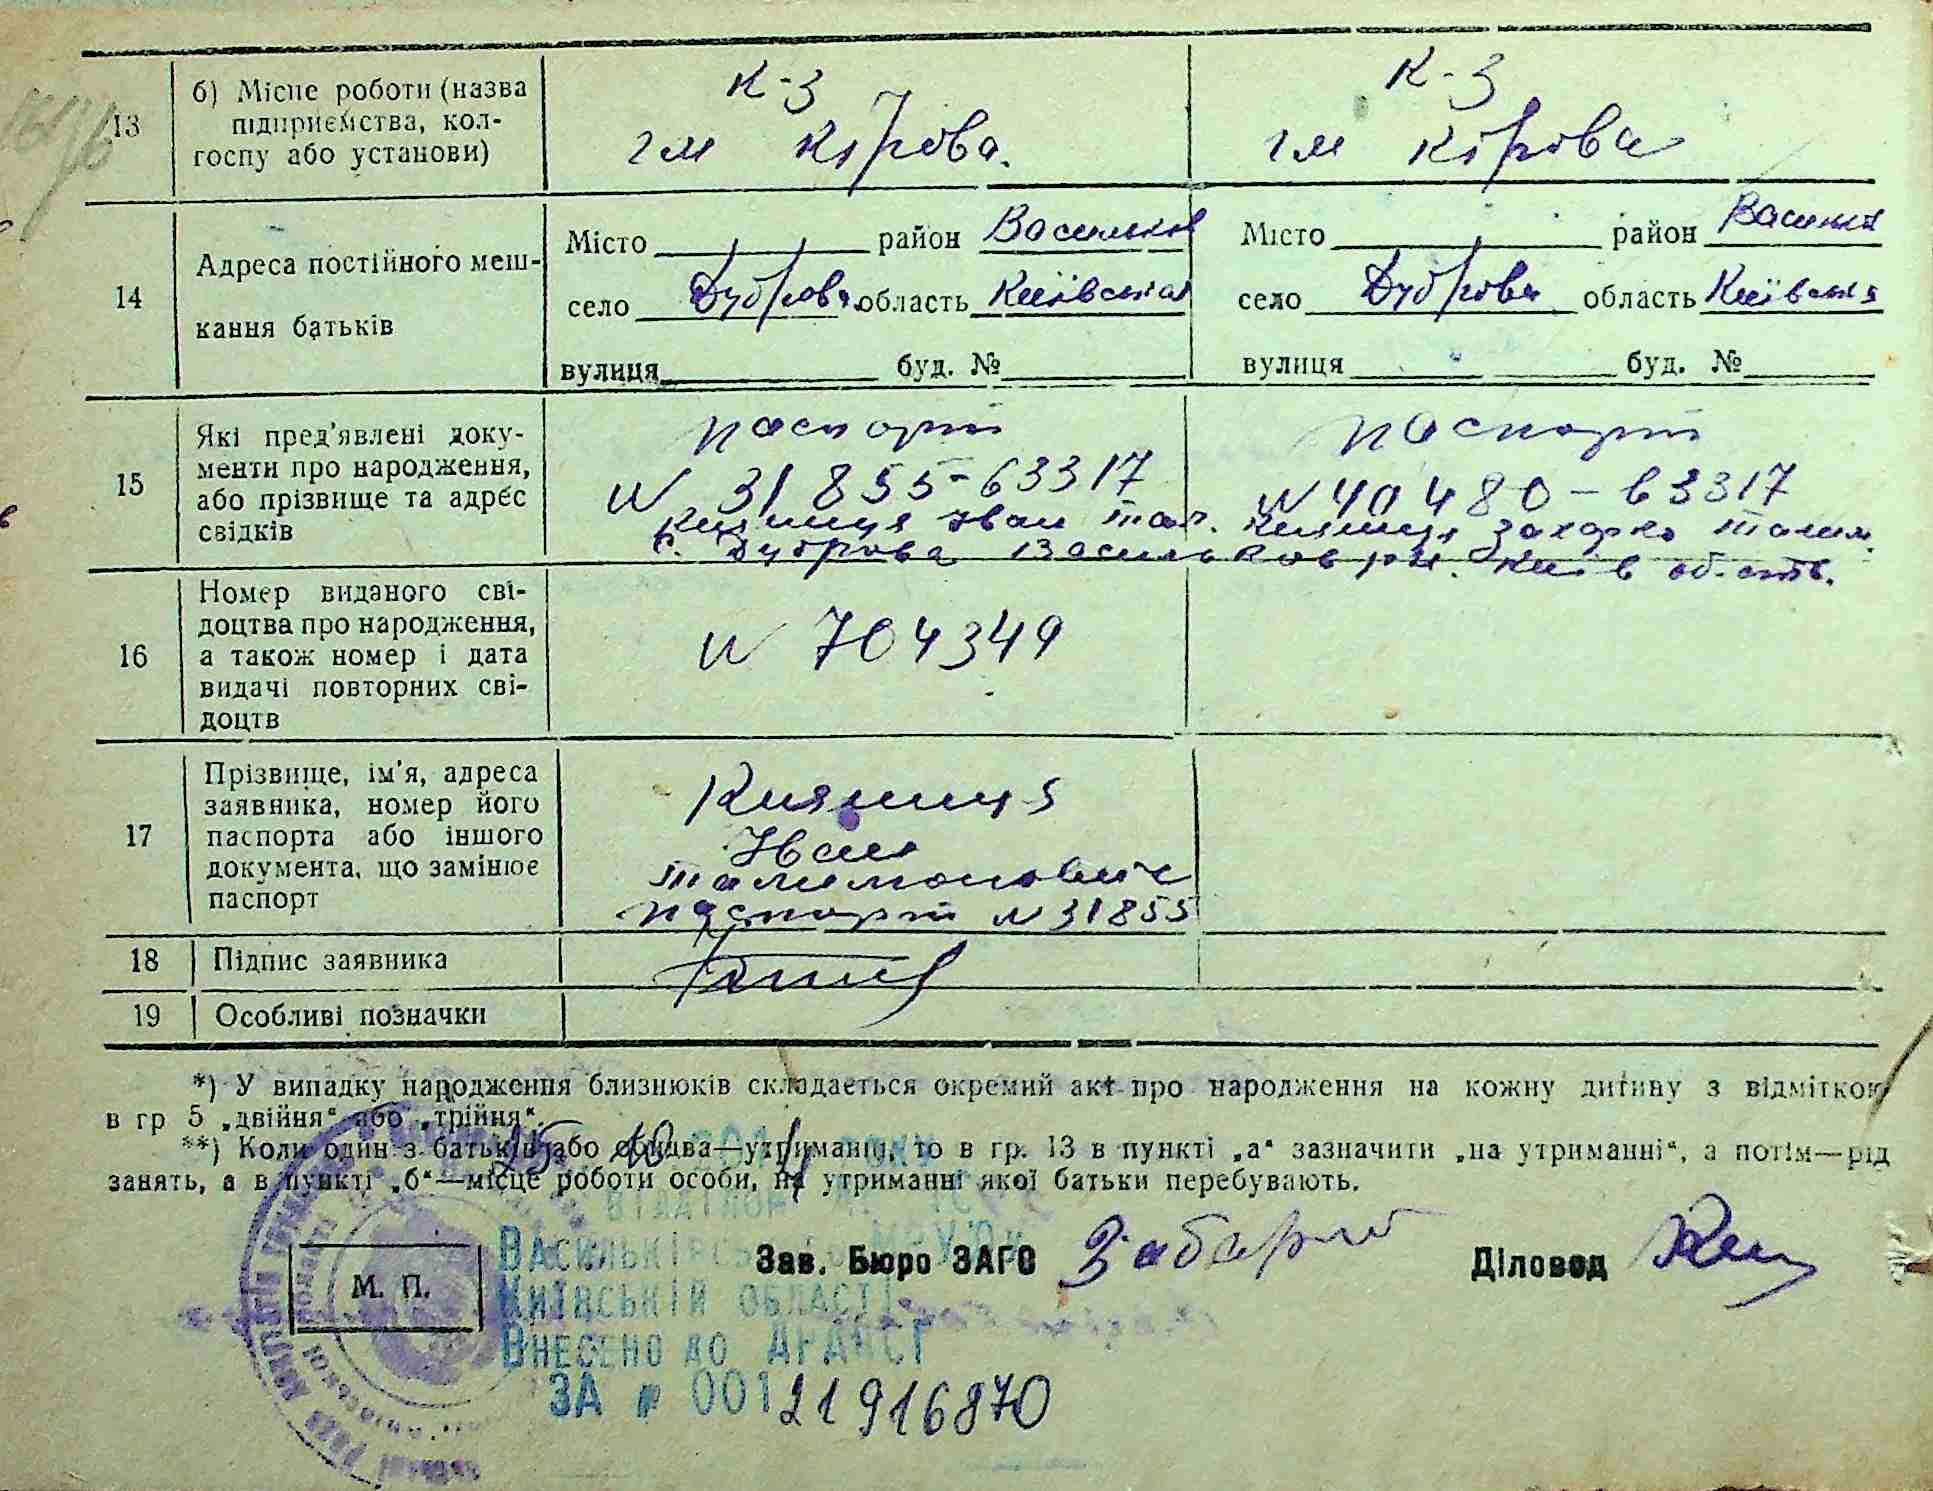 13 б) Місце роботи (назва підприємства, колгоспу або установи)
К-з К-з
ім Кірова. ім Кірова
14 Адреса постійного мешкання батьків
Місто район Васильків Місто район Васильків
село Дуброва область Київська село Дуброва область Київська
вулиця буд. № вулиця буд. №
15 Які пред'явлені документи про народження, або прізвище та адрес свідків
паспорт паспорт
N 31855-63317 N 40480-63317
Кияниця Іван Тал. Кияниця Захарко Талим.
с. Дуброва Васильков рн. Київ область.
16 Номер виданого свідоцтва про народження, а також номер і дата видачі повторних свідоцтв
N 704349
17 Прізвище, ім'я, адреса заявника, номер його паспорта або іншого документа, що замінює паспорт
Кияниця
Іван
Талимонович
паспорт N 31855
18 Підпис заявника
19 Особливі позначки
*) У випадку народження близнюків складається окремий акт про народження на кожну дитину з відміткою
в гр 5 „двійня“ або „трійня“.
**) Коли один з батьків або обидва—утриманці, то в гр. 13 в пункті „а“ зазначити „на утриманні“, а потім—рід
занять, а в пункті „б“—місце роботи особи, на утриманні якої батьки перебувають.
Васильківського МРУЮ
Зав. Бюро ЗАГС Діловод
М. П.
Київській області
Внесено до ДРАЦСГ
за № 00121916870